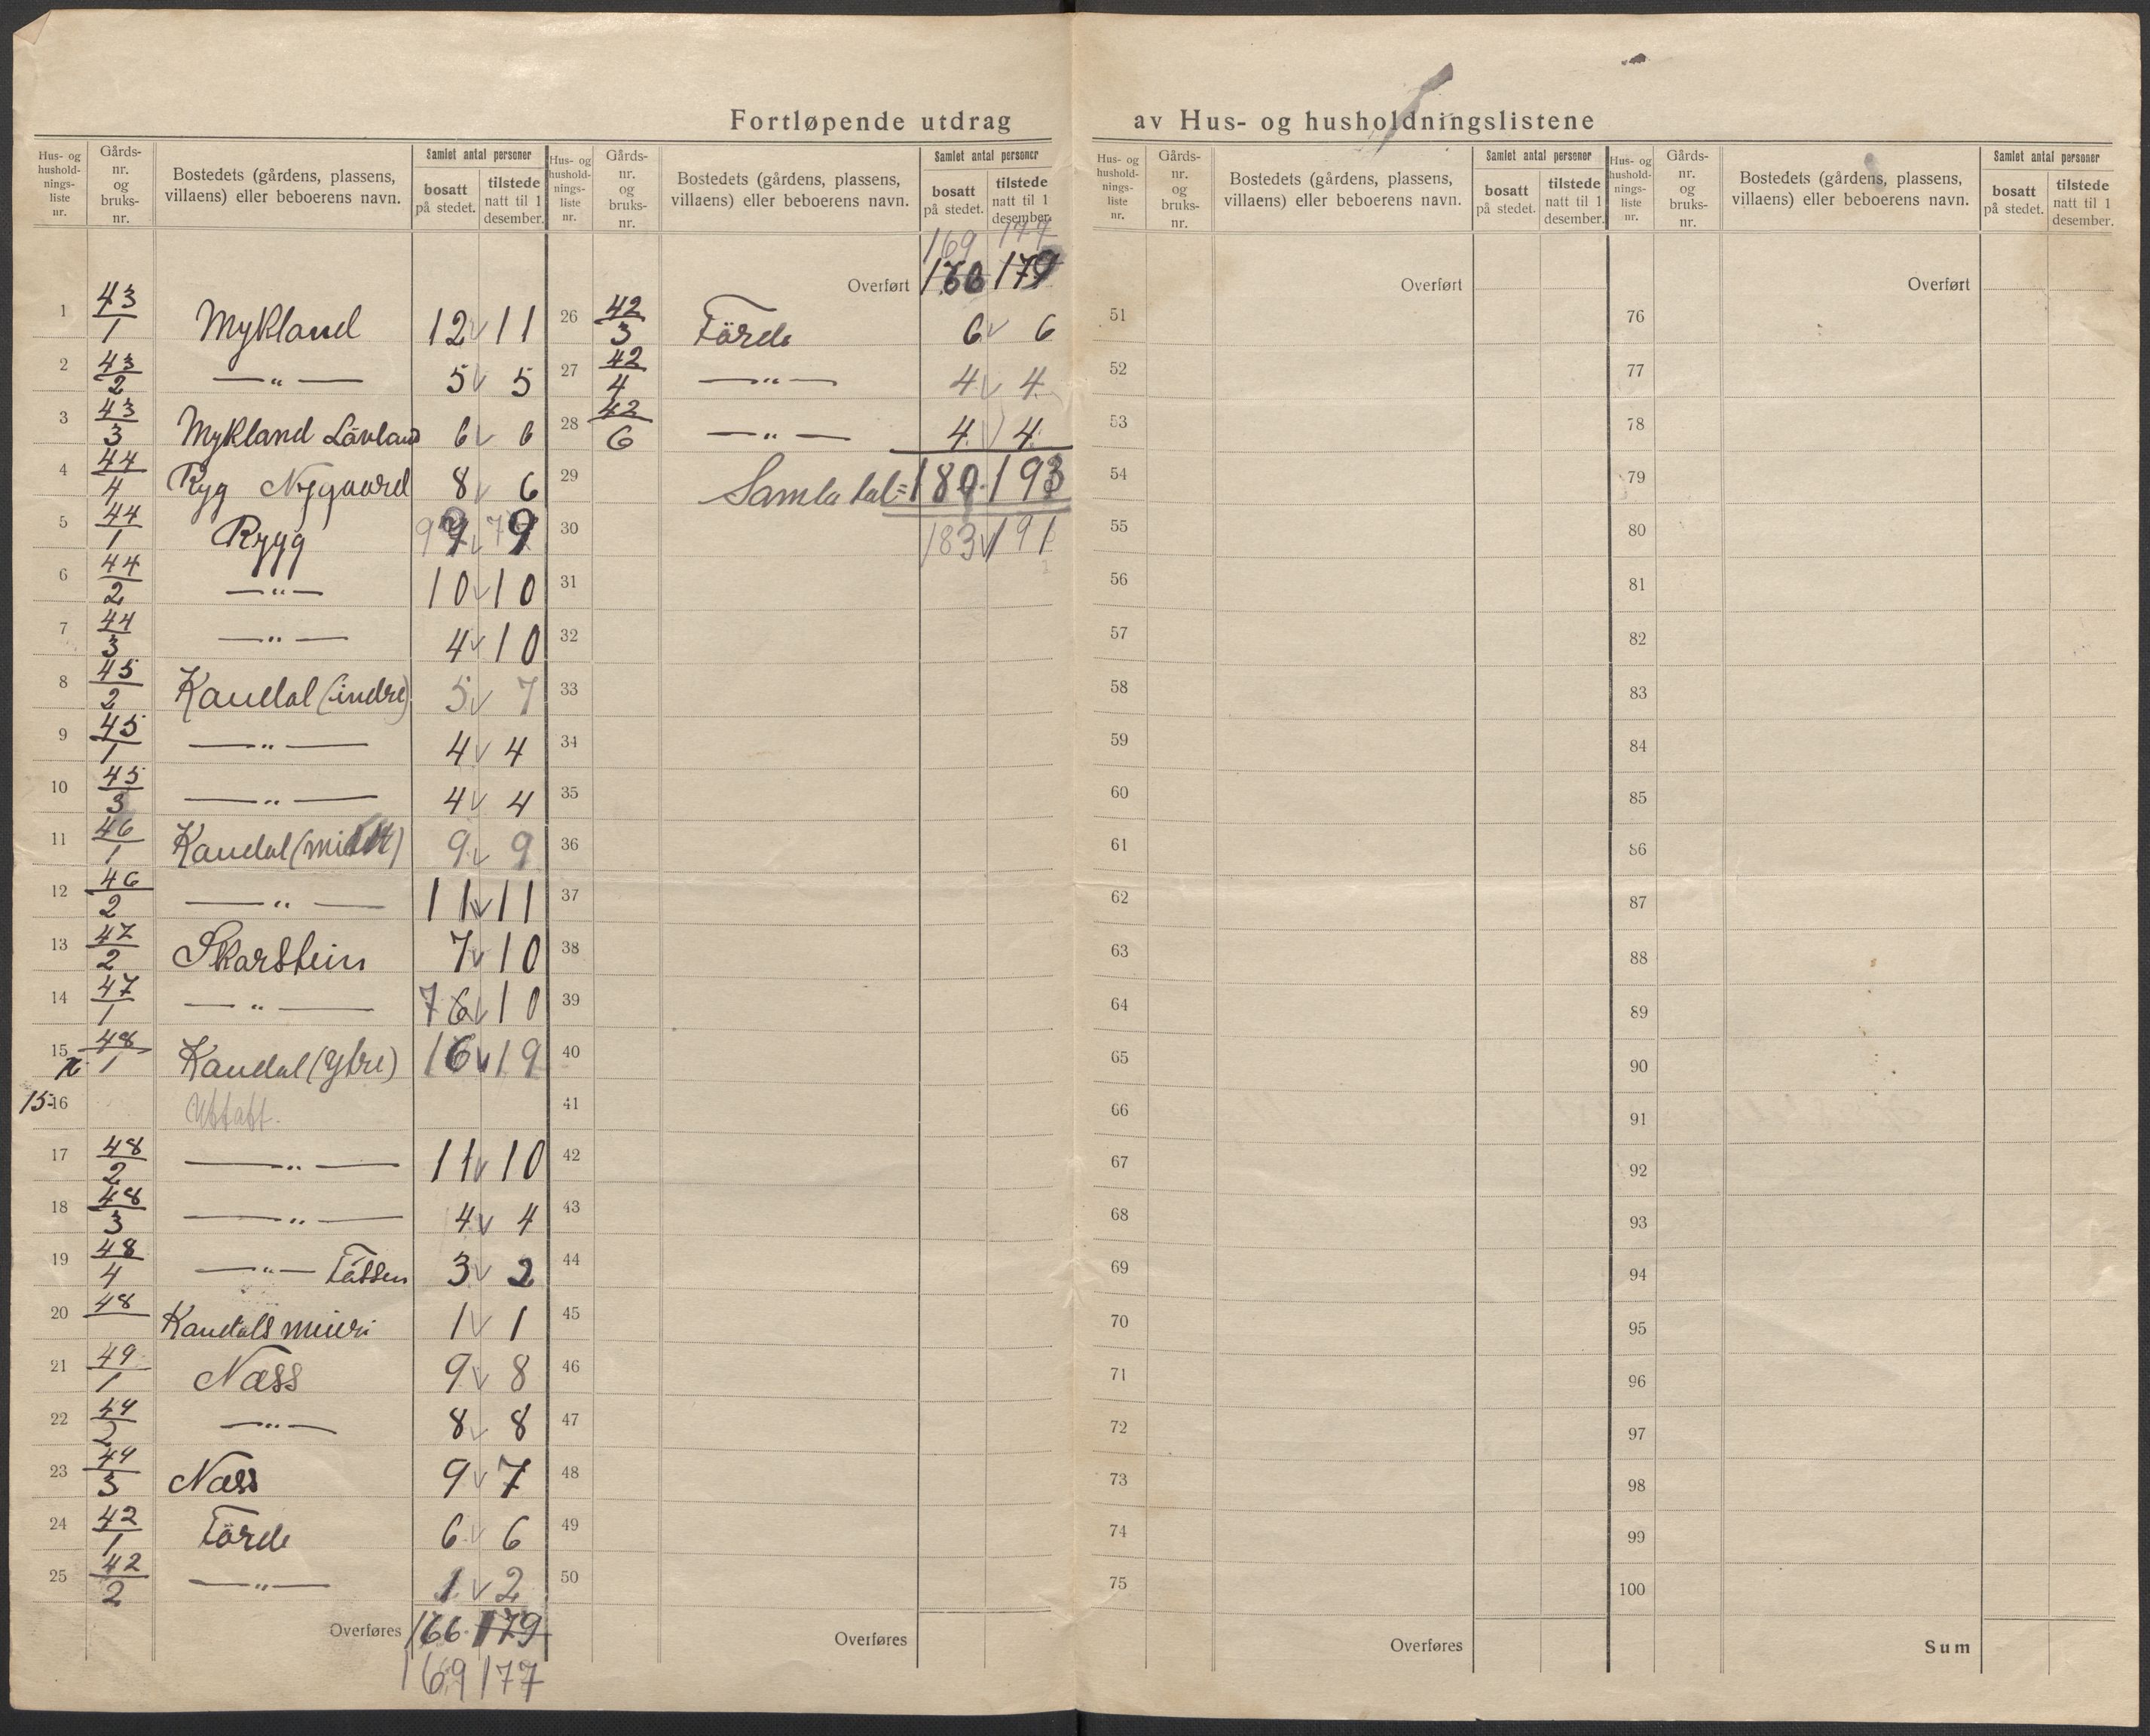 Fortløpende utdrag av Hus- og husholdningslistene
Hus- og husholdningsliste nr. | Gårdsnr. og bruksnr. | Bostedets (gårdens, plassens, villaens) eller beboerens navn. | Samlet antal personer | bosatt på stedet. | tilstede natt til 1 desember.
1 | 43/1 | Mykland | 12 v 11
2 | 43/2 | — " — | 5 v 5
3 | 43/3 | Mykland Lövland | 6 v 6
4 | 44/4 | Ryg Nygaard | 8 v 6
5 | 44/1 | Rygg | 9 v 9
6 | 44/2 | — " — | 10 v 10
7 | 44/3 | — " — | 4 v 10
8 | 45/2 | Kandal (indre) | 5 v 7
9 | 45/1 | — " — | 4 v 4
10 | 45/3 | — " — | 4 v 4
11 | 46/1 | Kandal | 9 v 9
12 | 46/2 | — " — | 11 v 11
13 | 47/2 | Skarstein | 7 v 10
14 | 47/1 | — " — | 7 6 v 10
15 | 48/1 | Kandal (ytre) | 16 v 19
15 16
17 | 48/2 | — " — | 11 v 10
18 | 48/3 | — " — | 4 v 4
19 | 48/4 | — " — Fossen | 3 v 2
20 | 48 | Kandals meieri | 1 v 1
21 | 49/1 | Næss | 9 v 8
22 | 49/2 | — " — | 8 v 8
23 | 49/3 | Næss | 9 v 7
24 | 42/1 | Förde | 6 v 6
25 | 42/2 | — " — | 1 v 2
Overføres 166 179
169 177
Hus- og husholdningsliste nr. | Gårdsnr. og bruksnr. | Bostedets (gårdens, plassens, villaens) eller beboerens navn. | Samlet antal personer | bosatt på stedet. | tilstede natt til 1 desember.
169 177
Overført 166 179
26 | 42/3 | Förde | 6 v 6
27 | 42/4 | — " — | 4 v 4
28 | 42/6 | — " — | 4 v 4
29 | Samla tal = 180 193
30 | 183 v 191
31
32
33
34
35
36
37
38
39
40
41
42
43
44
45
46
47
48
49
50
Overføres
Hus- og husholdningsliste nr. | Gårdsnr. og bruksnr. | Bostedets (gårdens, plassens, villaens) eller beboerens navn. | Samlet antal personer | bosatt på stedet. | tilstede natt til 1 desember.
Overført
51
52
53
54
55
56
57
58
59
60
61
62
63
64
65
66
67
68
69
70
71
72
73
74
75
Overføres
Hus- og husholdningsliste nr. | Gårdsnr. og bruksnr. | Bostedets (gårdens, plassens, villaens) eller beboerens navn. | Samlet antal personer | bosatt på stedet. | tilstede natt til 1 desember.
Overført
76
77
78
79
80
81
82
83
84
85
86
87
88
89
90
91
92
93
94
95
96
97
98
99
100
Sum